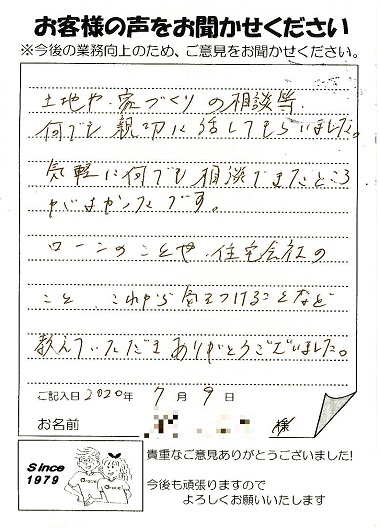 お客様の声をお聞かせください
※今後の業務向上のため、ご意見をお聞かせください。
土地や家づくりの相談等、
何でも親切に話してもらいました。
気軽に何でも相談できたところ
がよかったです。
ローンのことや、住宅会社の
こと、これから気をつけることなど
教えていただきありがとうございました。
ご記入日 2020年 7月 9日
お名前 様
Since
1979
Grace
Grace
貴重なご意見ありがとうございました!
今後も頑張りますので
よろしくお願いいたします